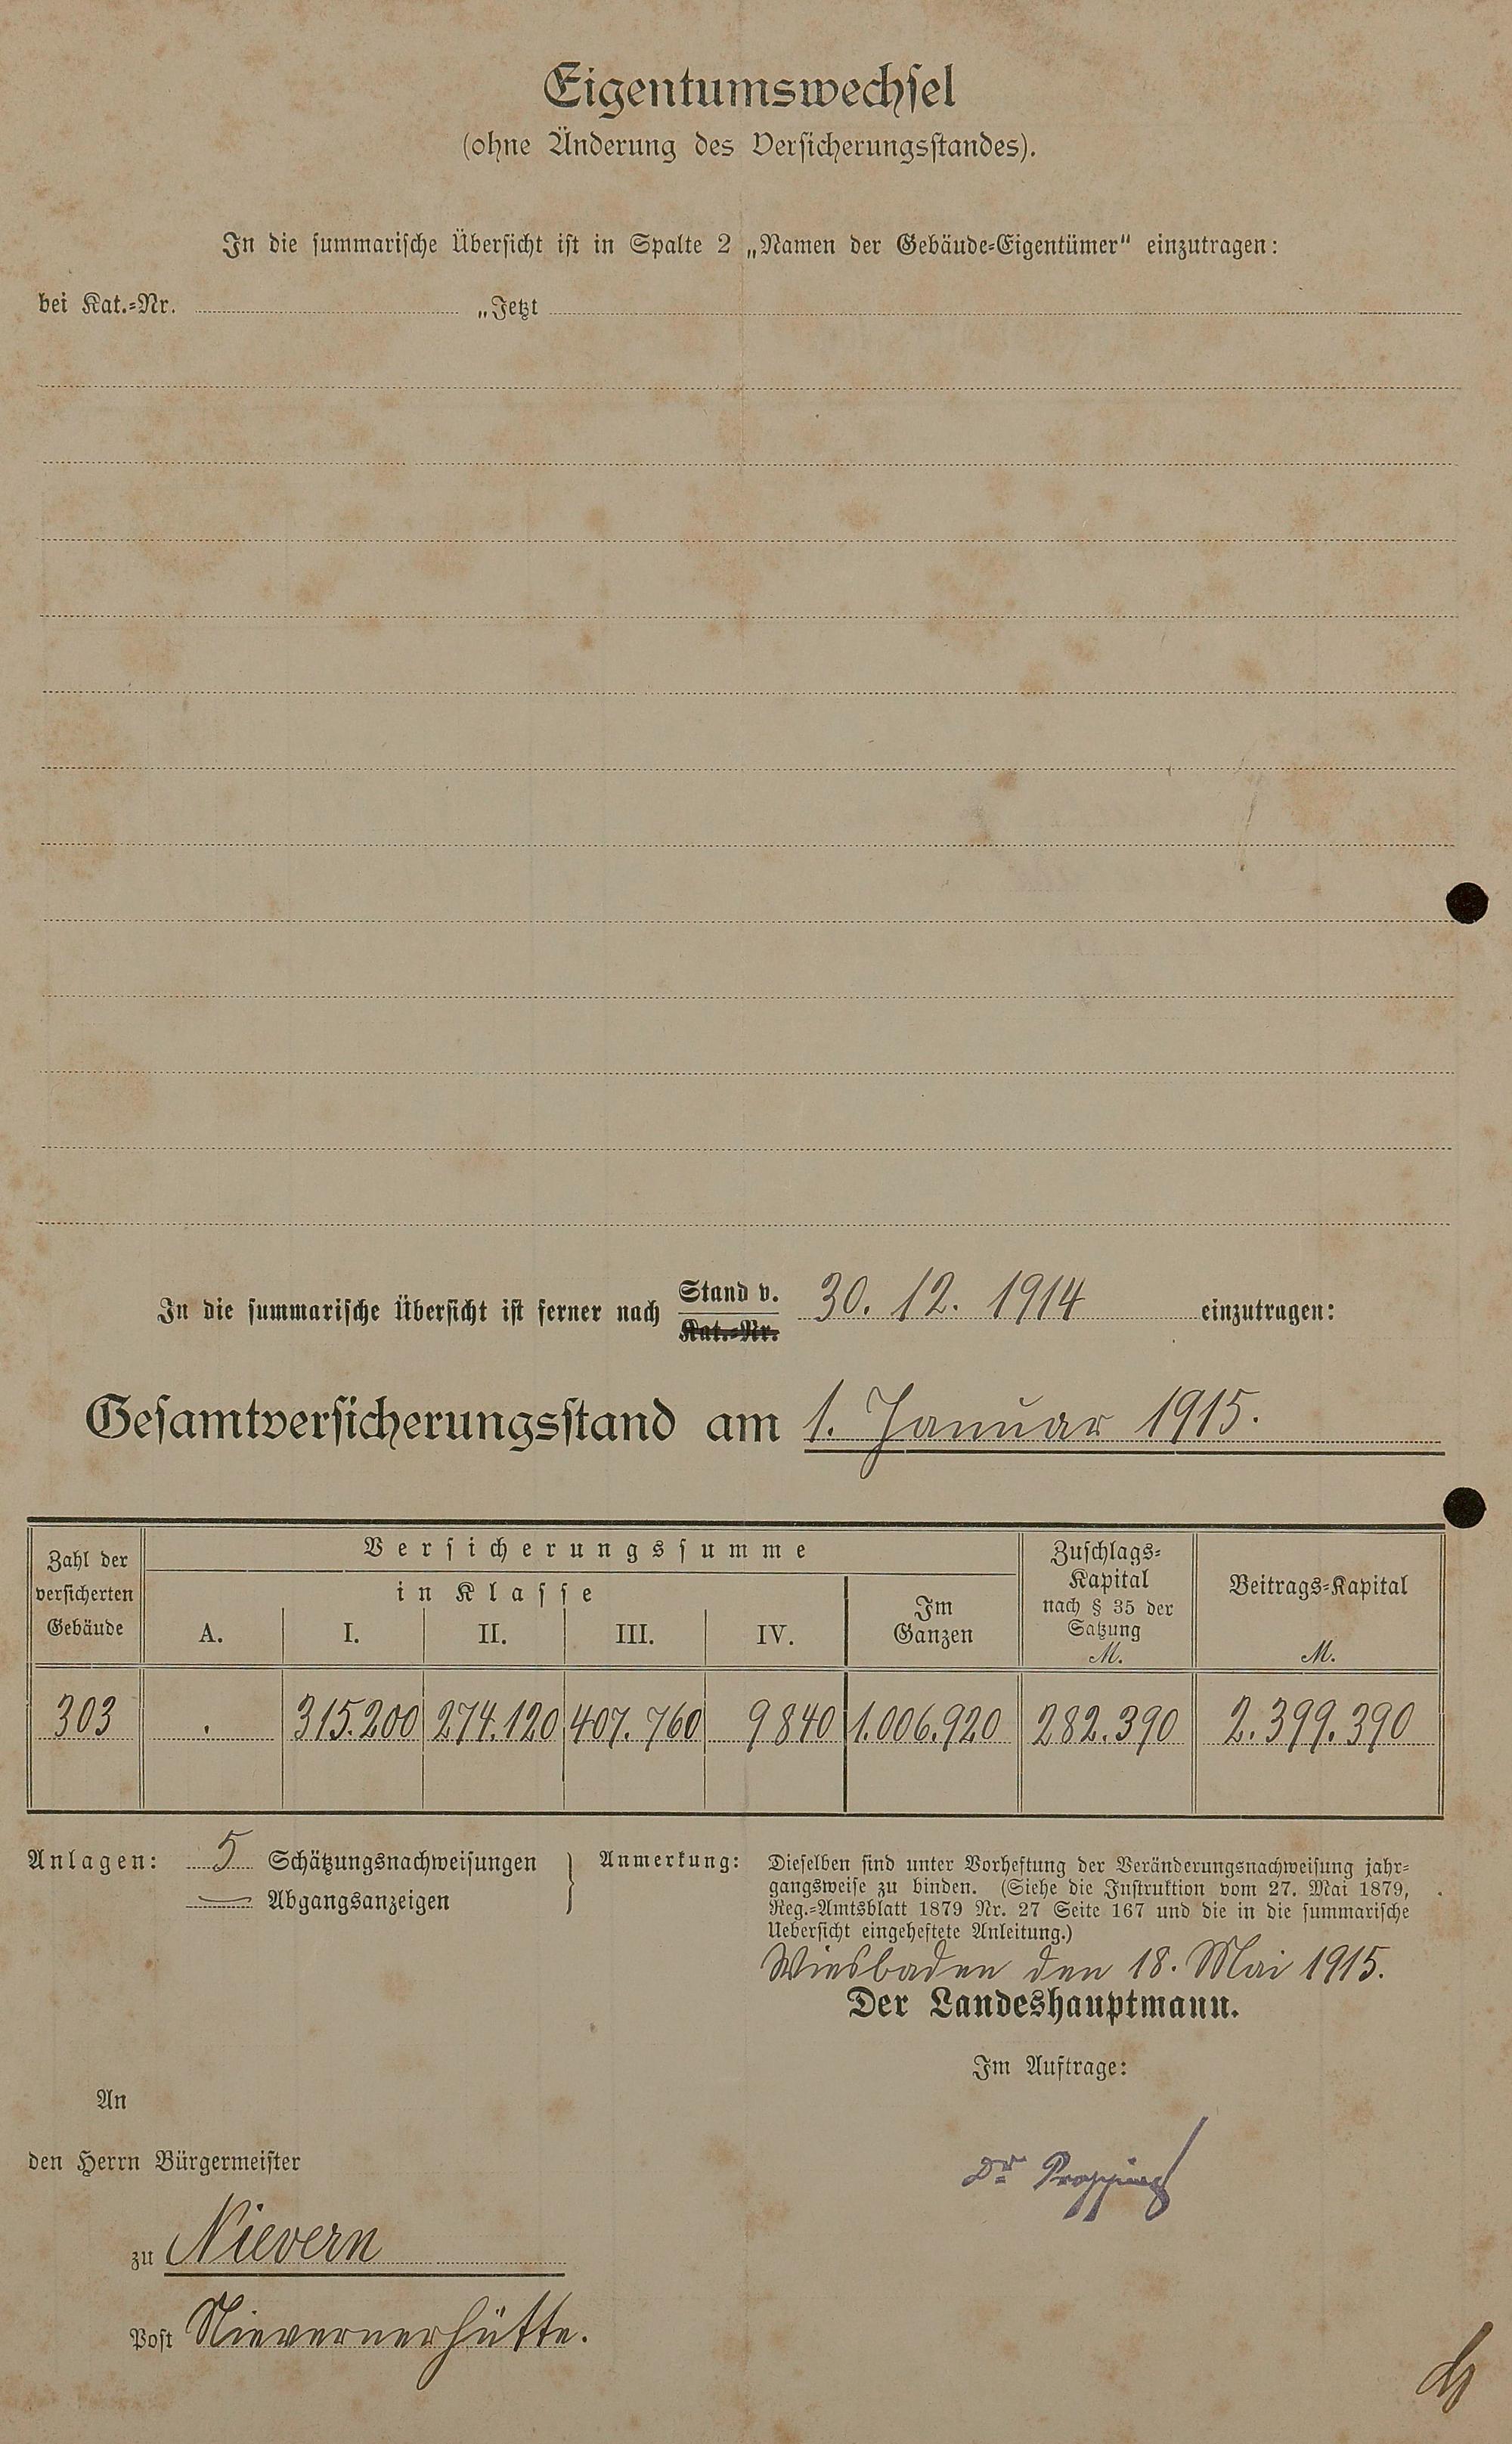 Eigentumswechsel
(ohne Änderung des Versicherungsstandes).
In die summarische Übersicht ist in Spalte 2 „Namen der Gebäude-Eigentümer“ einzutragen:
bei Kat.-Nr. „Jetzt
In die summarische Übersicht ist ferner nach Stand v. 30. 12. 1914 einzutragen:
Kat.-Nr.
Gesamtversicherungsstand am 1. Januar 1915.
Zahl der versicherten Gebäude
Versicherungssumme
in Klasse
A. I. II. III. IV.
Im Ganzen
Zuschlags-Kapital nach § 35 der Satzung M.
Beitrags-Kapital M.
303 . 315.200 274.120 407.760 9840 1.006.920 282.390 2.399.390
Anlagen: 5 Schätzungsnachweisungen
— Abgangsanzeigen
Anmerkung: Dieselben sind unter Vorheftung der Veränderungsnachweisung jahr-
gangsweise zu binden. (Siehe die Instruktion vom 27. Mai 1879,
Reg.-Amtsblatt 1879 Nr. 27 Seite 167 und die in die summarische
Uebersicht eingeheftete Anleitung.)
Wiesbaden den 18. Mai 1915.
Der Landeshauptmann.
Im Auftrage:
Dr
An
den Herrn Bürgermeister
zu Nievern
Post Nievernerhütte.